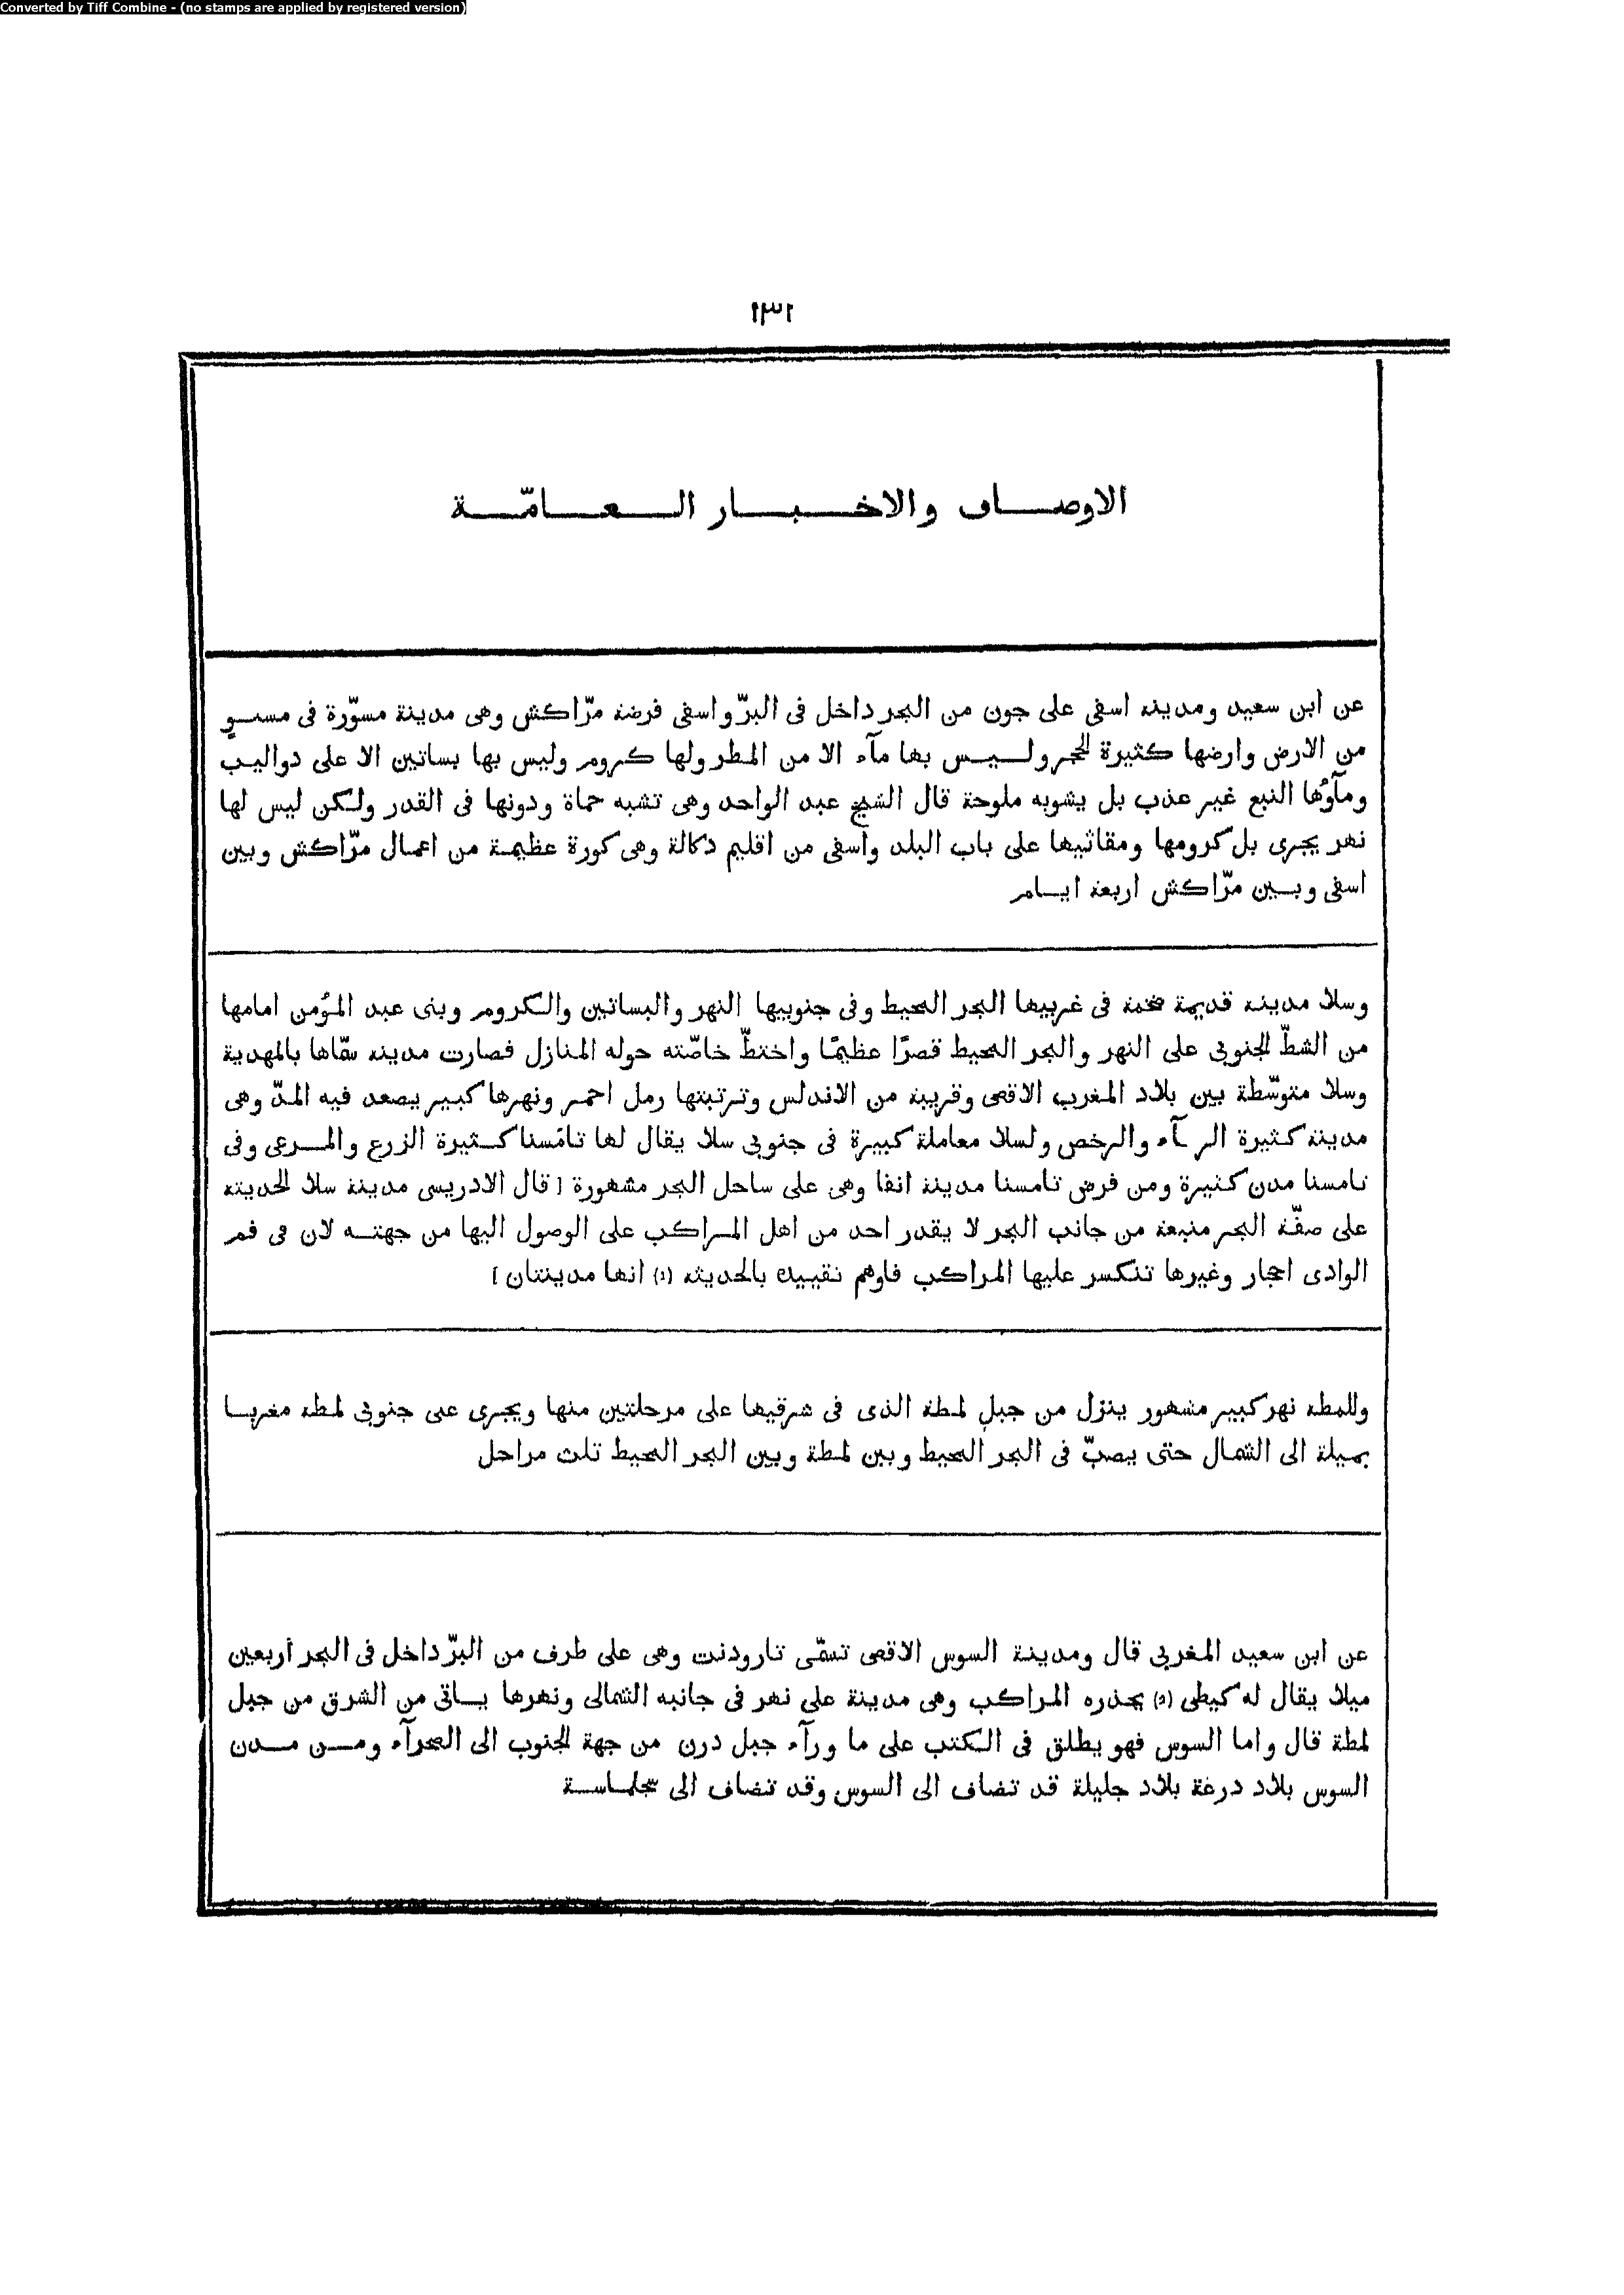 Converted by Tiff Combine - (no stamps are applied by registered version)
١٣١
الاوصاف والاخبار العامّة
عن ابن سعيد ومدينة اسفى على جون من البحر داخل فى البرّ واسفى فرضة مرّاكش وهى مدينة مسوّرة فى مستوٍ
من الارض وارضها كثيرة الحجر وليس بها مآء الا من المطر ولها كروم وليس بها بساتين الا على دواليب
ومآوُها النبع غير عذب بل يشوبه ملوحة قال الشيخ عبد الواحد وهى تشبه حماة ودونها فى القدر ولكن ليس لها
نهر يجرى بل كرومها ومقاثيها على باب البلد واسفى من اقليم دكالة وهى كورة عظيمة من اعمال مرّاكش وبين
اسفى وبين مرّاكش اربعة ايام
وسلا مدينة قديمة ضخمة فى غربيها البحر المحيط وفى جنوبيها النهر والبساتين والكروم وبنى عبد المؤمن امامها
من الشطّ الجنوبى على النهر والبحر المحيط قصرًا عظيمًا واختطّ خاصّته حوله المنازل فصارت مدينة سمّاها بالمهدية
وسلا متوسّطة بين بلاد المغرب الاقصى وقريبة من الاندلس وتربتها رمل احمر ونهرها كبير يصعد فيه المدّ وهى
مدينة كثيرة والرخص ولسلا معاملة كبيرة فى جنوبى سلا يقال لها تامَسنا كثيرة الزرع والمرعى وفى
تامسنا مدن كثيرة ومن فرض تامسنا مدينة انفا وهى على ساحل البحر مشهورة [ قال الادريسى مدينة سلا الحديثة
على ضفّة البحر منيعة من جانب البحر لا يقدر احد من اهل المراكب على الوصول اليها من جهته لان فى فم
الوادى احجار وغيرها تنكسر عليها المراكب فاوهم تقييده بالحديثة (١) انها مدينتان ]
وللمطة نهر كبير مشهور ينزل من جبل لمطة الذى فى شرقيها على مرحلتين منها ويجرى على جنوبى لمطة مغربا
بميلة الى الشمال حتى يصبّ فى البحر المحيط وبين لمطة وبين البحر المحيط ثلث مراحل
عن ابن سعيد المغربى قال ومدينة السوس الاقصى تسمّى تارودنت وهى على طرف من البرّ داخل فى البحر أربعين
ميلا يقال له كيطى يحذره المراكب وهى مدينة على نهر فى جانبه الشمالى ونهرها ياتى من الشرق من جبل
لمطة قال واما السوس فهو يطلق فى الكتب على ما ورآء جبل درن من جهة الجنوب الى الصحرآء ومن مدن
السوس بلاد درعة بلاد جليلة قد تضاف الى السوس وقد تضاف الى سجلماسة